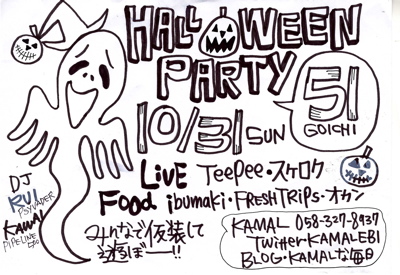 HALLOWEEN
PARTY
10/31 SUN
51
GOICHI
LIVE TeePee・スケロク
Food ibumaki・FRESHTRIPS・オガン
みんなで仮装して
遊ぼー!!
DJ
RUI
PSYVADER
KAWAI
PIPELINE
KAMAL 058-327-8937
TWITTER・KAMALEBI
BLOG・KAMALな毎日